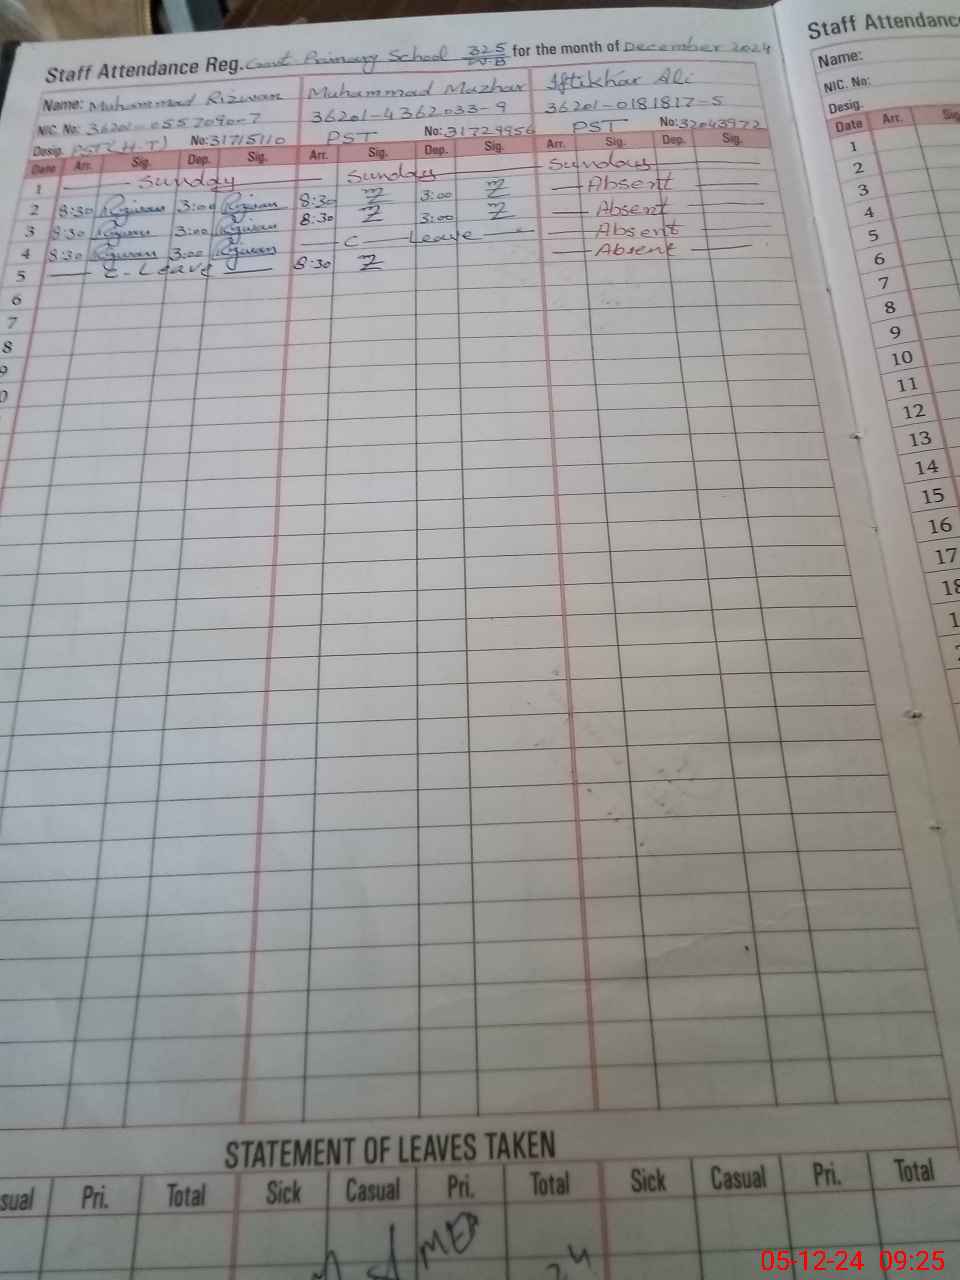 Staff Attendance Reg. Govt Primary School 325/W.B for the month of December 2024
Name: Muhammad Rizwan Muhammad Mazhar Iftikhar Ali
NIC. No: 36201-4362033-9 36201-0181817-5
Desig. PST(H.T) No:31715110 PST No:31729956 PST No:32043972
Date Arr. Sig. Dep. Sig. Arr. Sig. Dep. Sig. Arr. Sig. Dep. Sig.
1 Sunday Sunday Sunday
2 8:30 Rizwan 3:00 Rizwan 8:30 3:00 Absent
3 8:30 Rizwan 3:00 Rizwan 8:30 3:00 Absent
4 8:30 Rizwan 3:00 Rizwan C Leave Absent
5 C-Leave 8:30 Absent
6
7
8
9
0
STATEMENT OF LEAVES TAKEN
sual Pri. Total Sick Casual Pri. Total Sick Casual Pri. Total
Staff Attendance
Name:
NIC. No:
Desig.
Date Arr. Sig
1
2
3
4
5
6
7
8
9
10
11
12
13
14
15
16
17
18
05-12-24 09:25